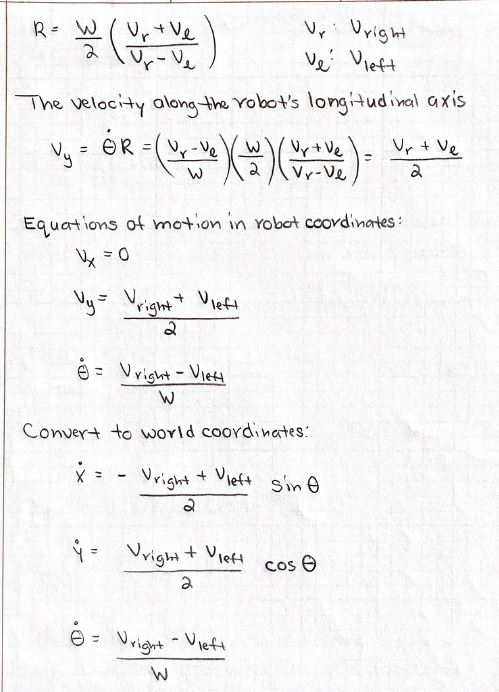 R = W/2 ( (Vr + Vl) / (Vr - Vl) )    Vr : Vright
Vl : Vleft
The velocity along the robot's longitudinal axis
Vy = θ̇ R = ( (Vr - Vl) / W ) ( W/2 ) ( (Vr + Vl) / (Vr - Vl) ) = (Vr + Vl) / 2
Equations of motion in robot coordinates:
Vx = 0
Vy = (Vright + Vleft) / 2
θ̇ = (Vright - Vleft) / W
Convert to world coordinates:
ẋ = - (Vright + Vleft) / 2 sin θ
ẏ = (Vright + Vleft) / 2 cos θ
θ̇ = (Vright - Vleft) / W